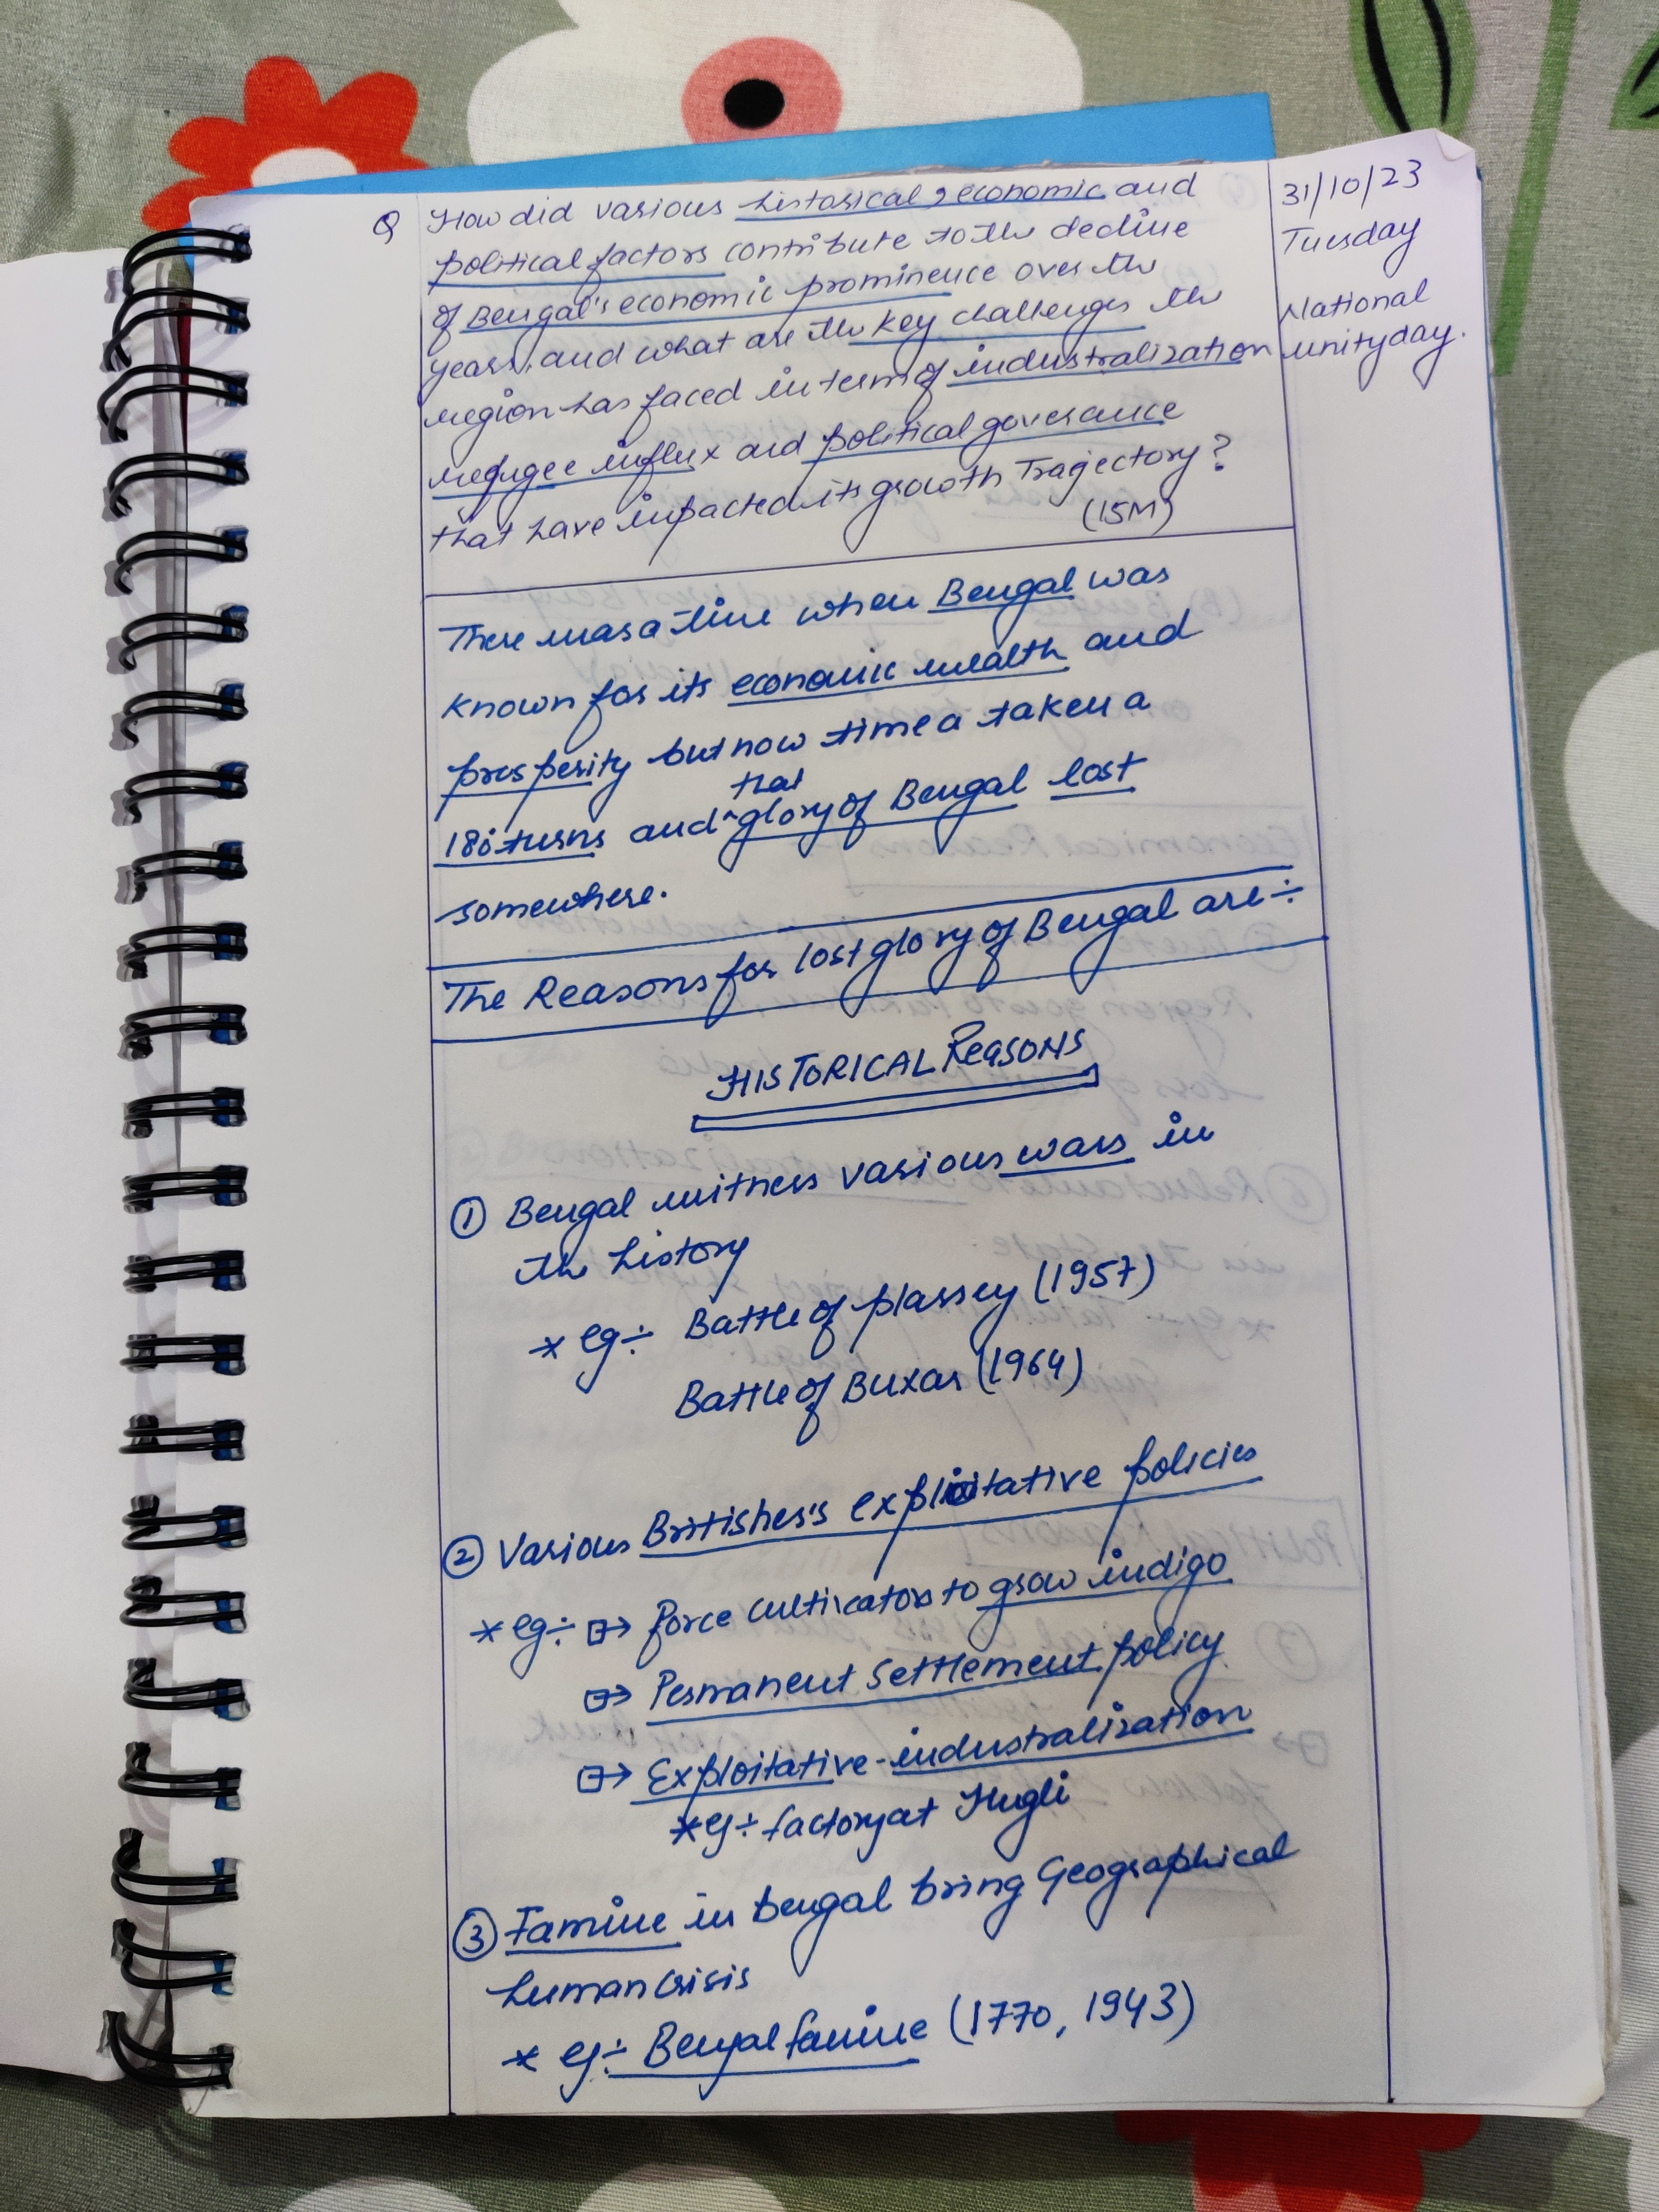 Q How did various historical, economic and
political factors contribute to the decline
of Bengal's economic prominence over the
years, and what are the key challenges the
region has faced in term of industralization
refugee influx and political goverance
that have impacted its growth Trajectory?
(15M)
31/10/23
Tuesday
National
unity day.
There was a time when Bengal was
known for its economic wealth and
prosperity but now time a taken a
180° turns and ^ that glory of Bengal lost
somewhere.
The Reasons for lost glory of Bengal are ÷
HISTORICAL REASONS
① Bengal witness various wars in
the history
* eg ÷ Battle of plassey (1957)
Battle of Buxar (1964)
② Various Britishers's exploitative policies
* eg ÷ → Force cultivators to grow indigo
→ Permanent Settlement policy
→ Exploitative - industralization
* eg ÷ factory at Hugli
③ Famine in bengal bring Geographical
human Crisis
* eg ÷ Bengal famine (1770, 1943)